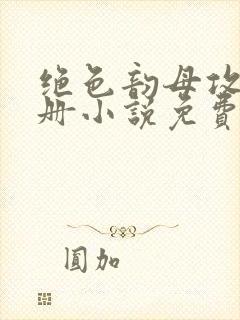 绝色韵母攻
册小説免費
圓加